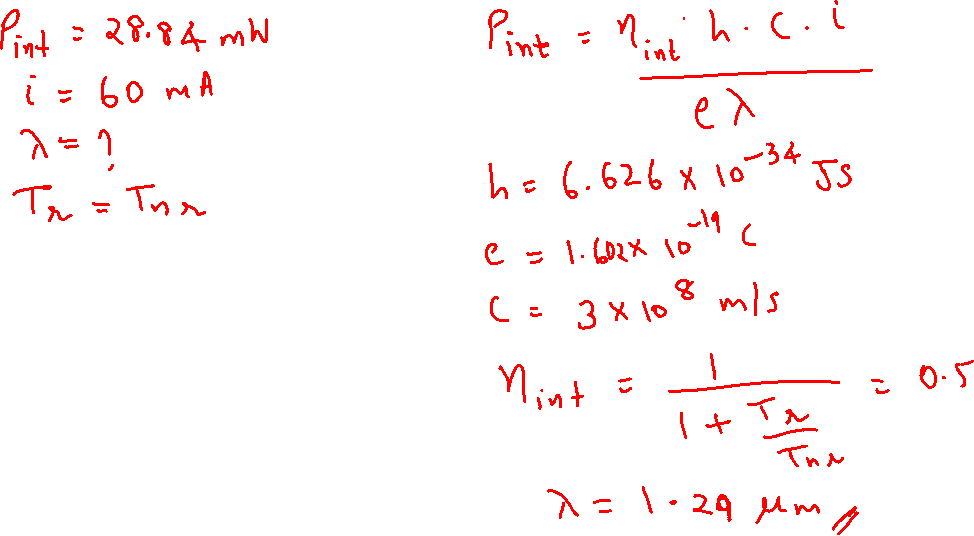 Pint = 28.84 mW
i = 60 mA
λ = ?
Tr = Tnr
Pint = ηint h . c . i / eλ
h = 6.626 x 10^-34 JS
e = 1.602 x 10^-19 C
C = 3 x 10^8 m/s
ηint = 1 / 1 + Tr/Tnr = 0.5
λ = 1.29 μm //